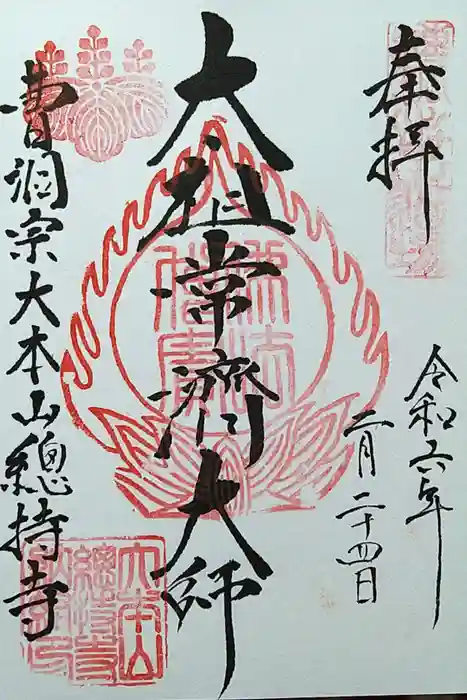 奉拝
令和六年
二月二十四日
太祖常済大師
曹洞宗大本山總持寺
大本山
總持寺